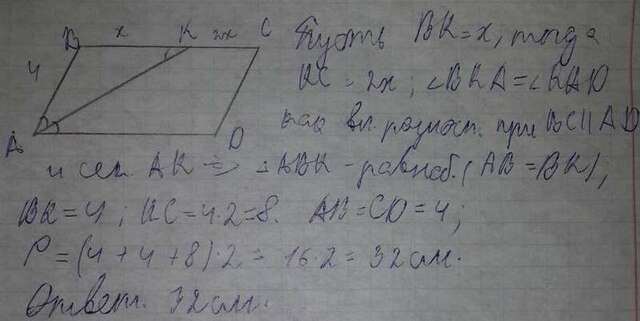 B x K 2x C
4
A D
Пусть BK = x, тогда
KC - 2x; ∠BKA = ∠KAD
как вн. разност. при BC || AD
и сек. AK ⇒ △ABK - равноб. (AB = BK),
BK = 4; KC = 4·2 = 8. AB = CD = 4;
P = (4 + 4 + 8)·2 = 16·2 = 32 см.
Ответ. 32 см.